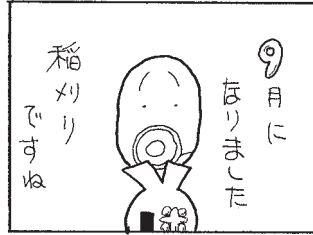 9月に
なりました
稲刈り
ですね
米